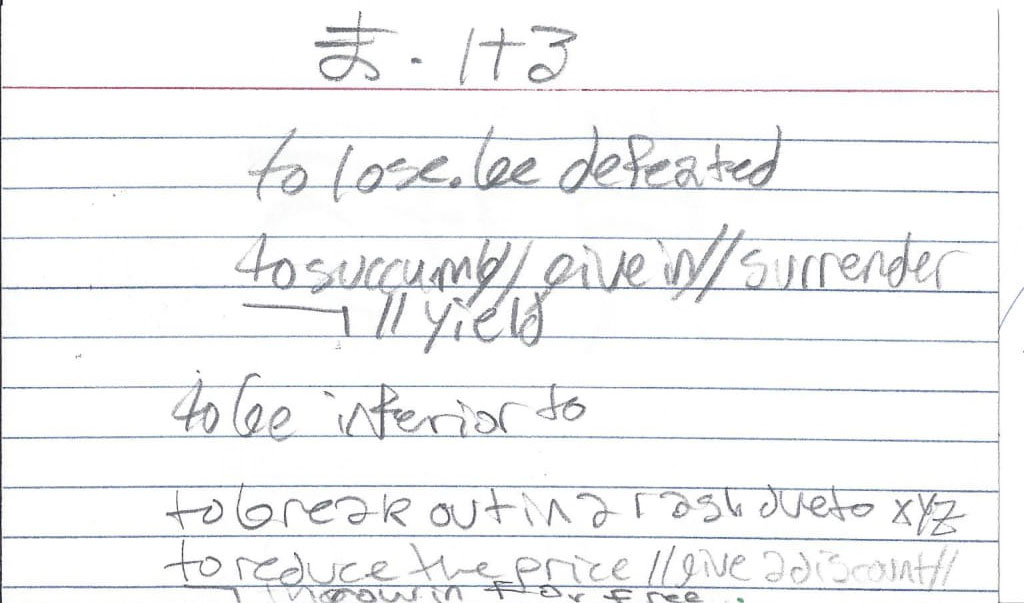 ま・ける
to lose. be defeated
to succumb// give in// surrender
// yield
to be inferior to
to break out in a rash due to xyz
to reduce the price // give a discount//
throw in for free